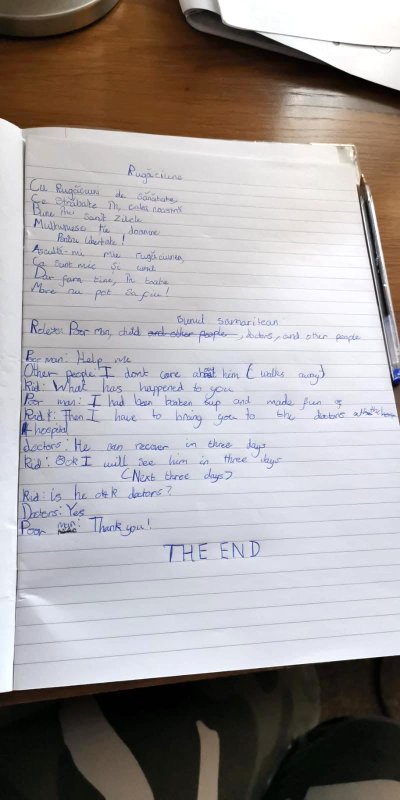 Rugăciune
Ca Rugăciuni de sănătate
Ce străbate în casa noastră
Bune sunt zilele
Mulțumesc ție doamne
Pentru libertate!
Ascultă-mi mie rugăciunea,
Ca sunt mic și
Dar fara tine, în toate
Mare nu pot sa fiu!
Bunul samaritean
Roleto: Poor man, child and other people, doctors, and other people
Poor man: Help me
Other people: I dont care about him (walks away)
Kid: What has happened to you
Poor man: I had been beaten up and made fun of
Kid: Then I have to bring you to the doctors at the
hospital
doctors: He can recover in three days
Kid: Ok I will see him in three days
(Next three days)
Kid: is he ok doctors?
Doctors: Yes
Poor man: Thank you!
THE END